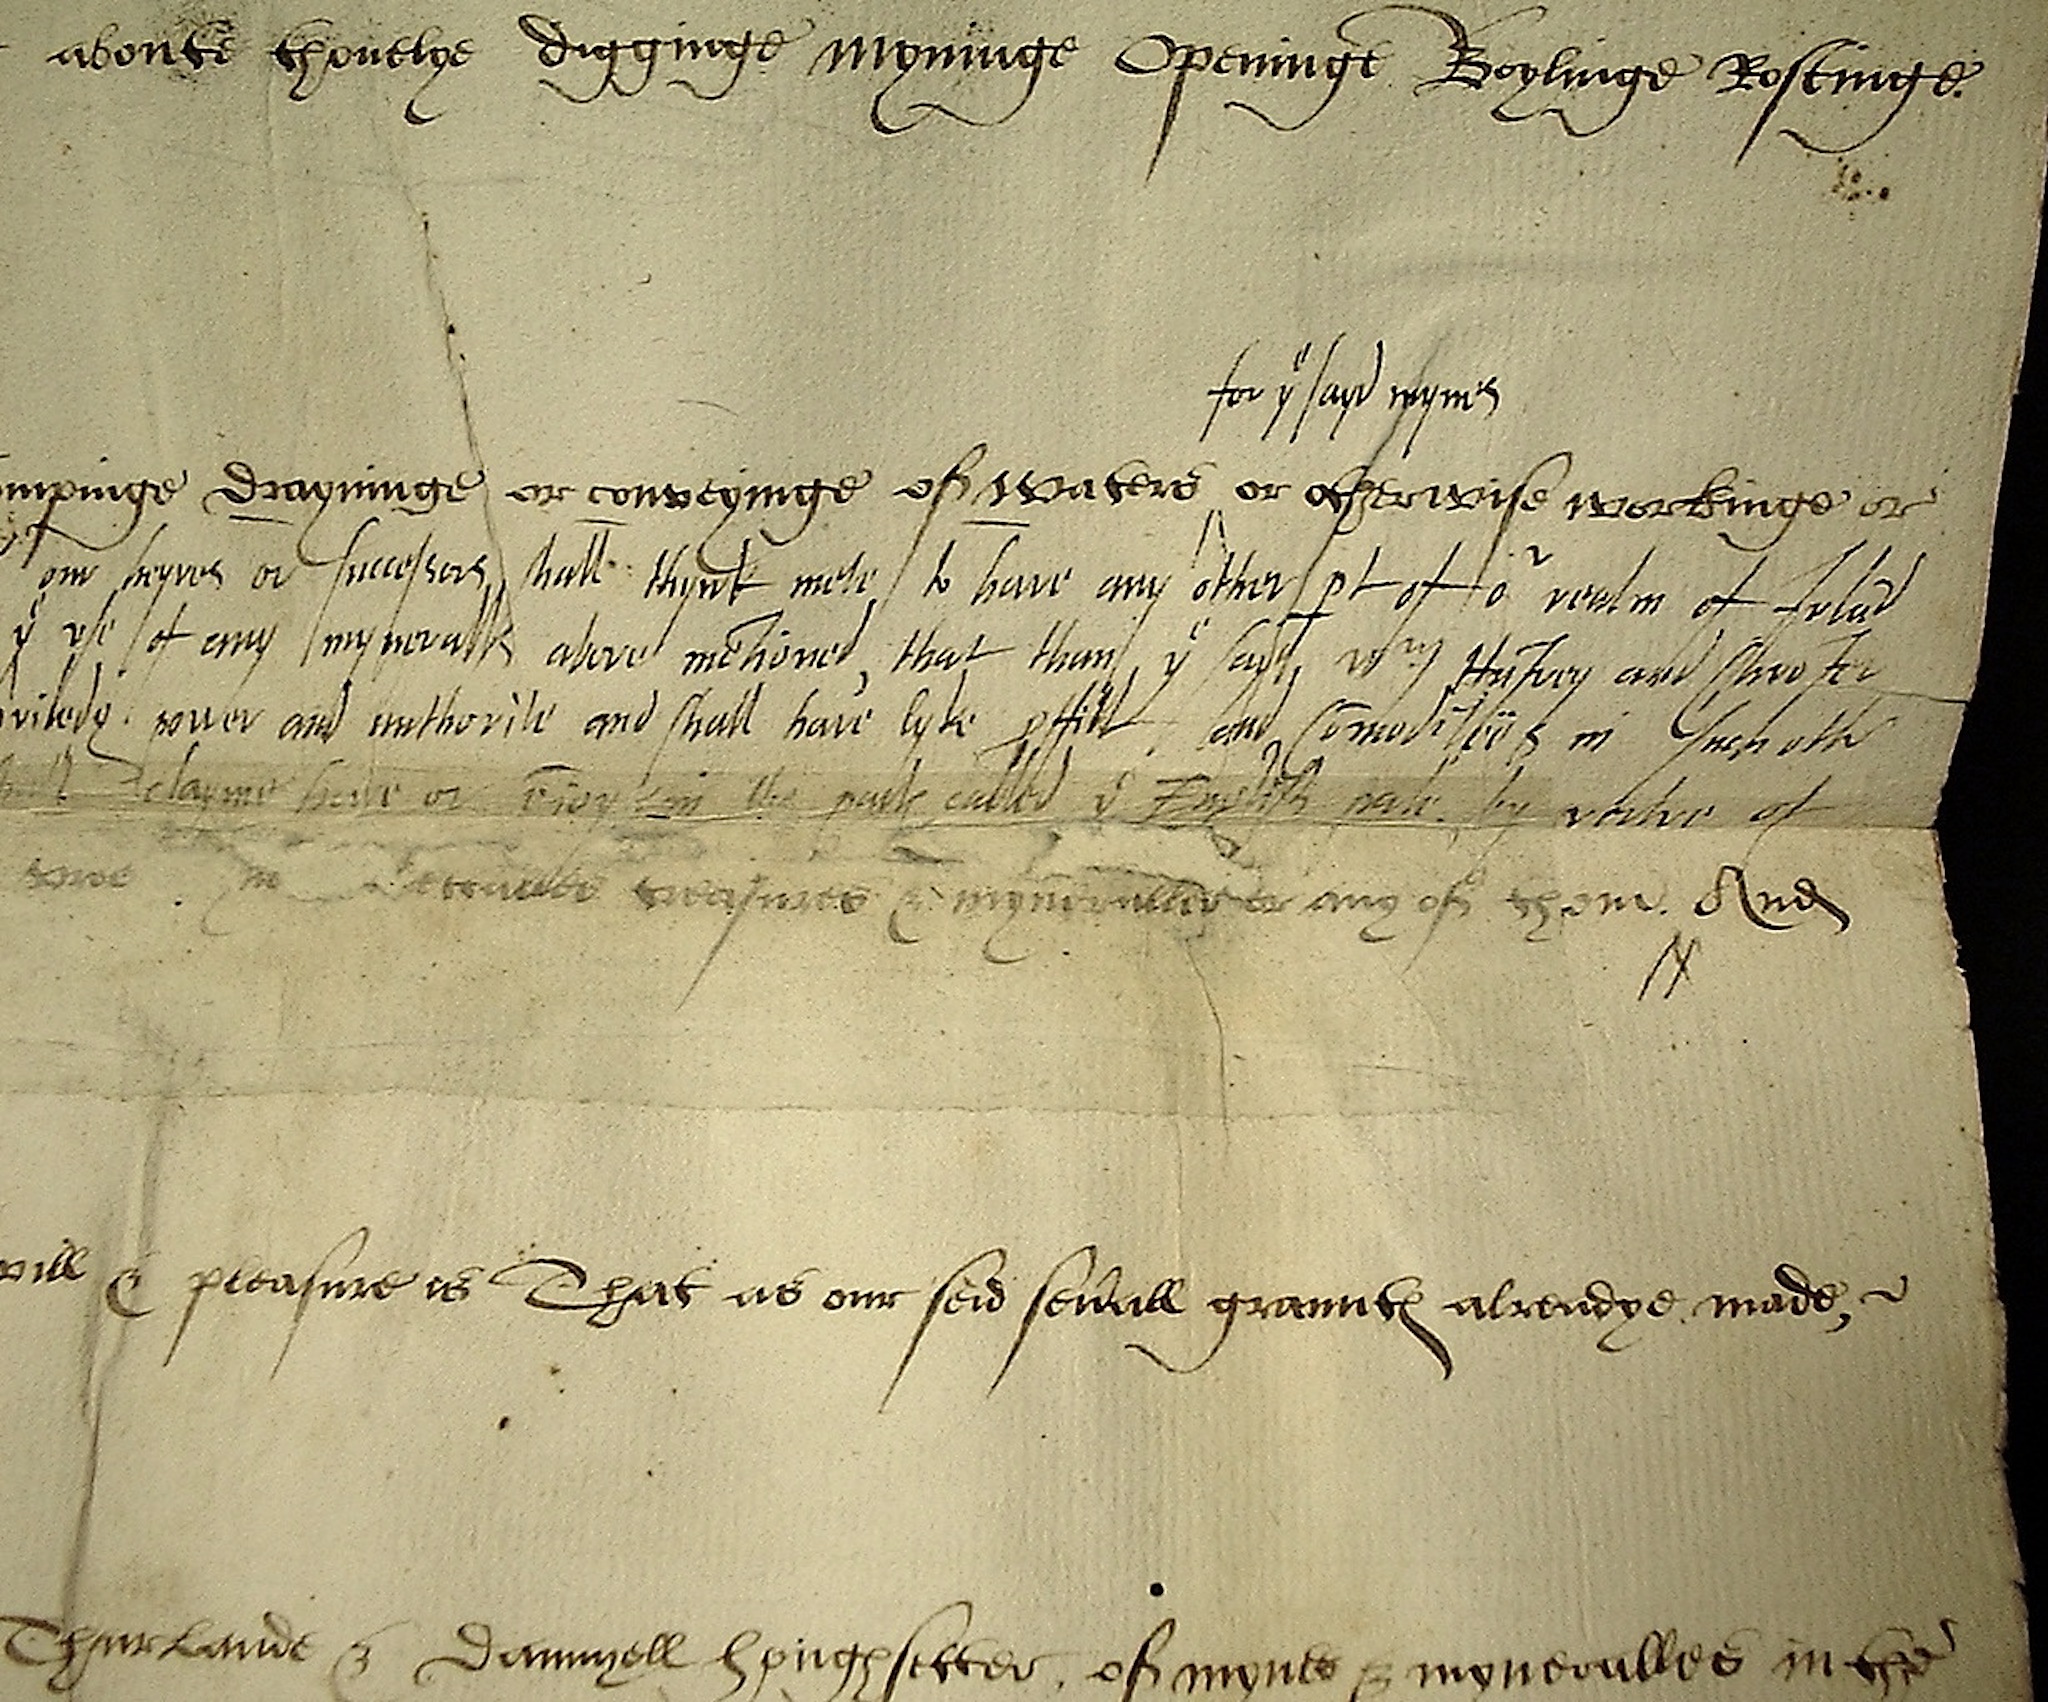 aboute thonelye Digginge Myninge Openinge Boylinge Rostinge.
for yͤ sayd mynes
ompinge Drayninge or conveyinge of Waters or otherwise workinge or
our heyres or successors shall thynk mete to have any other pt of oͬ realm of Irlād
yͤ use of any myneralls above mētioned, that than yͤ sayd Wᵐ Hūfrey and Shew ter
priviledg power and authorite and shall have lyke pffitt and Cōmodities in such othr
clayme have or in the parte called yͤ English pale by vertue of
treasures & myneralles or any of thom. And
will & pleasure is That as our seid sevˀall grauntes alreadye made,
Thurlande & Dannyell Houghsetter, of mynes & myneralles in the